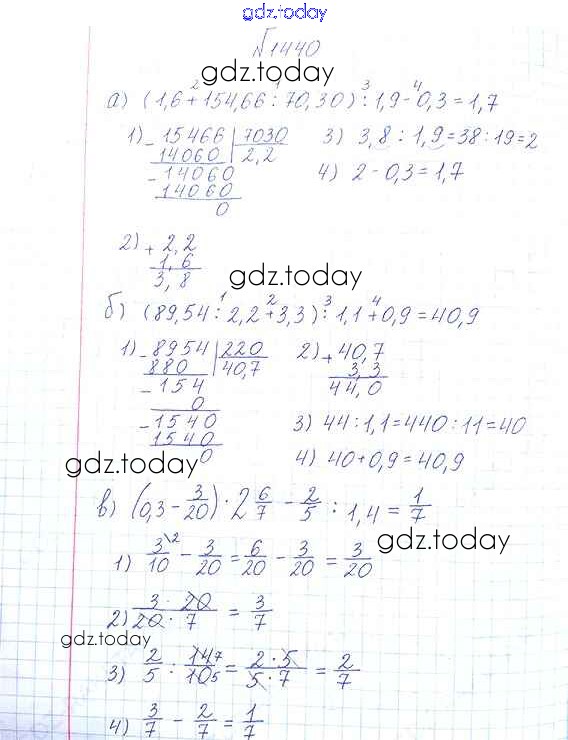 gdz.today
№1440
gdz.today
а) (1,6 + 154,66 : 70,30) : 1,9 - 0,3 = 1,7
2 1 3 4
1) - 15466 | 7030
14060 | 2,2
- 14060
14060
0
3) 3,8 : 1,9 = 38 : 19 = 2
4) 2 - 0,3 = 1,7
2) + 2,2
1,6
3,8
gdz.today
б) (89,54 : 2,2 + 3,3) : 1,1 + 0,9 = 40,9
1 2 3 4
1) - 8954 | 220
880 | 40,7
- 154
0
- 1540
1540
0
2) + 40,7
3,3
44,0
3) 44 : 1,1 = 440 : 11 = 40
4) 40 + 0,9 = 40,9
gdz.today
в) (0,3 - 3/20) · 2 6/7 - 2/5 : 1,4 = 1/7
gdz.today
1) 3\2/10 - 3/20 = 6/20 - 3/20 = 3/20
2) 3 · 20/20 · 7 = 3/7
gdz.today
3) 2/5 : 14 7/10 5 = 2 · 5/5 · 7 = 2/7
4) 3/7 - 2/7 = 1/7